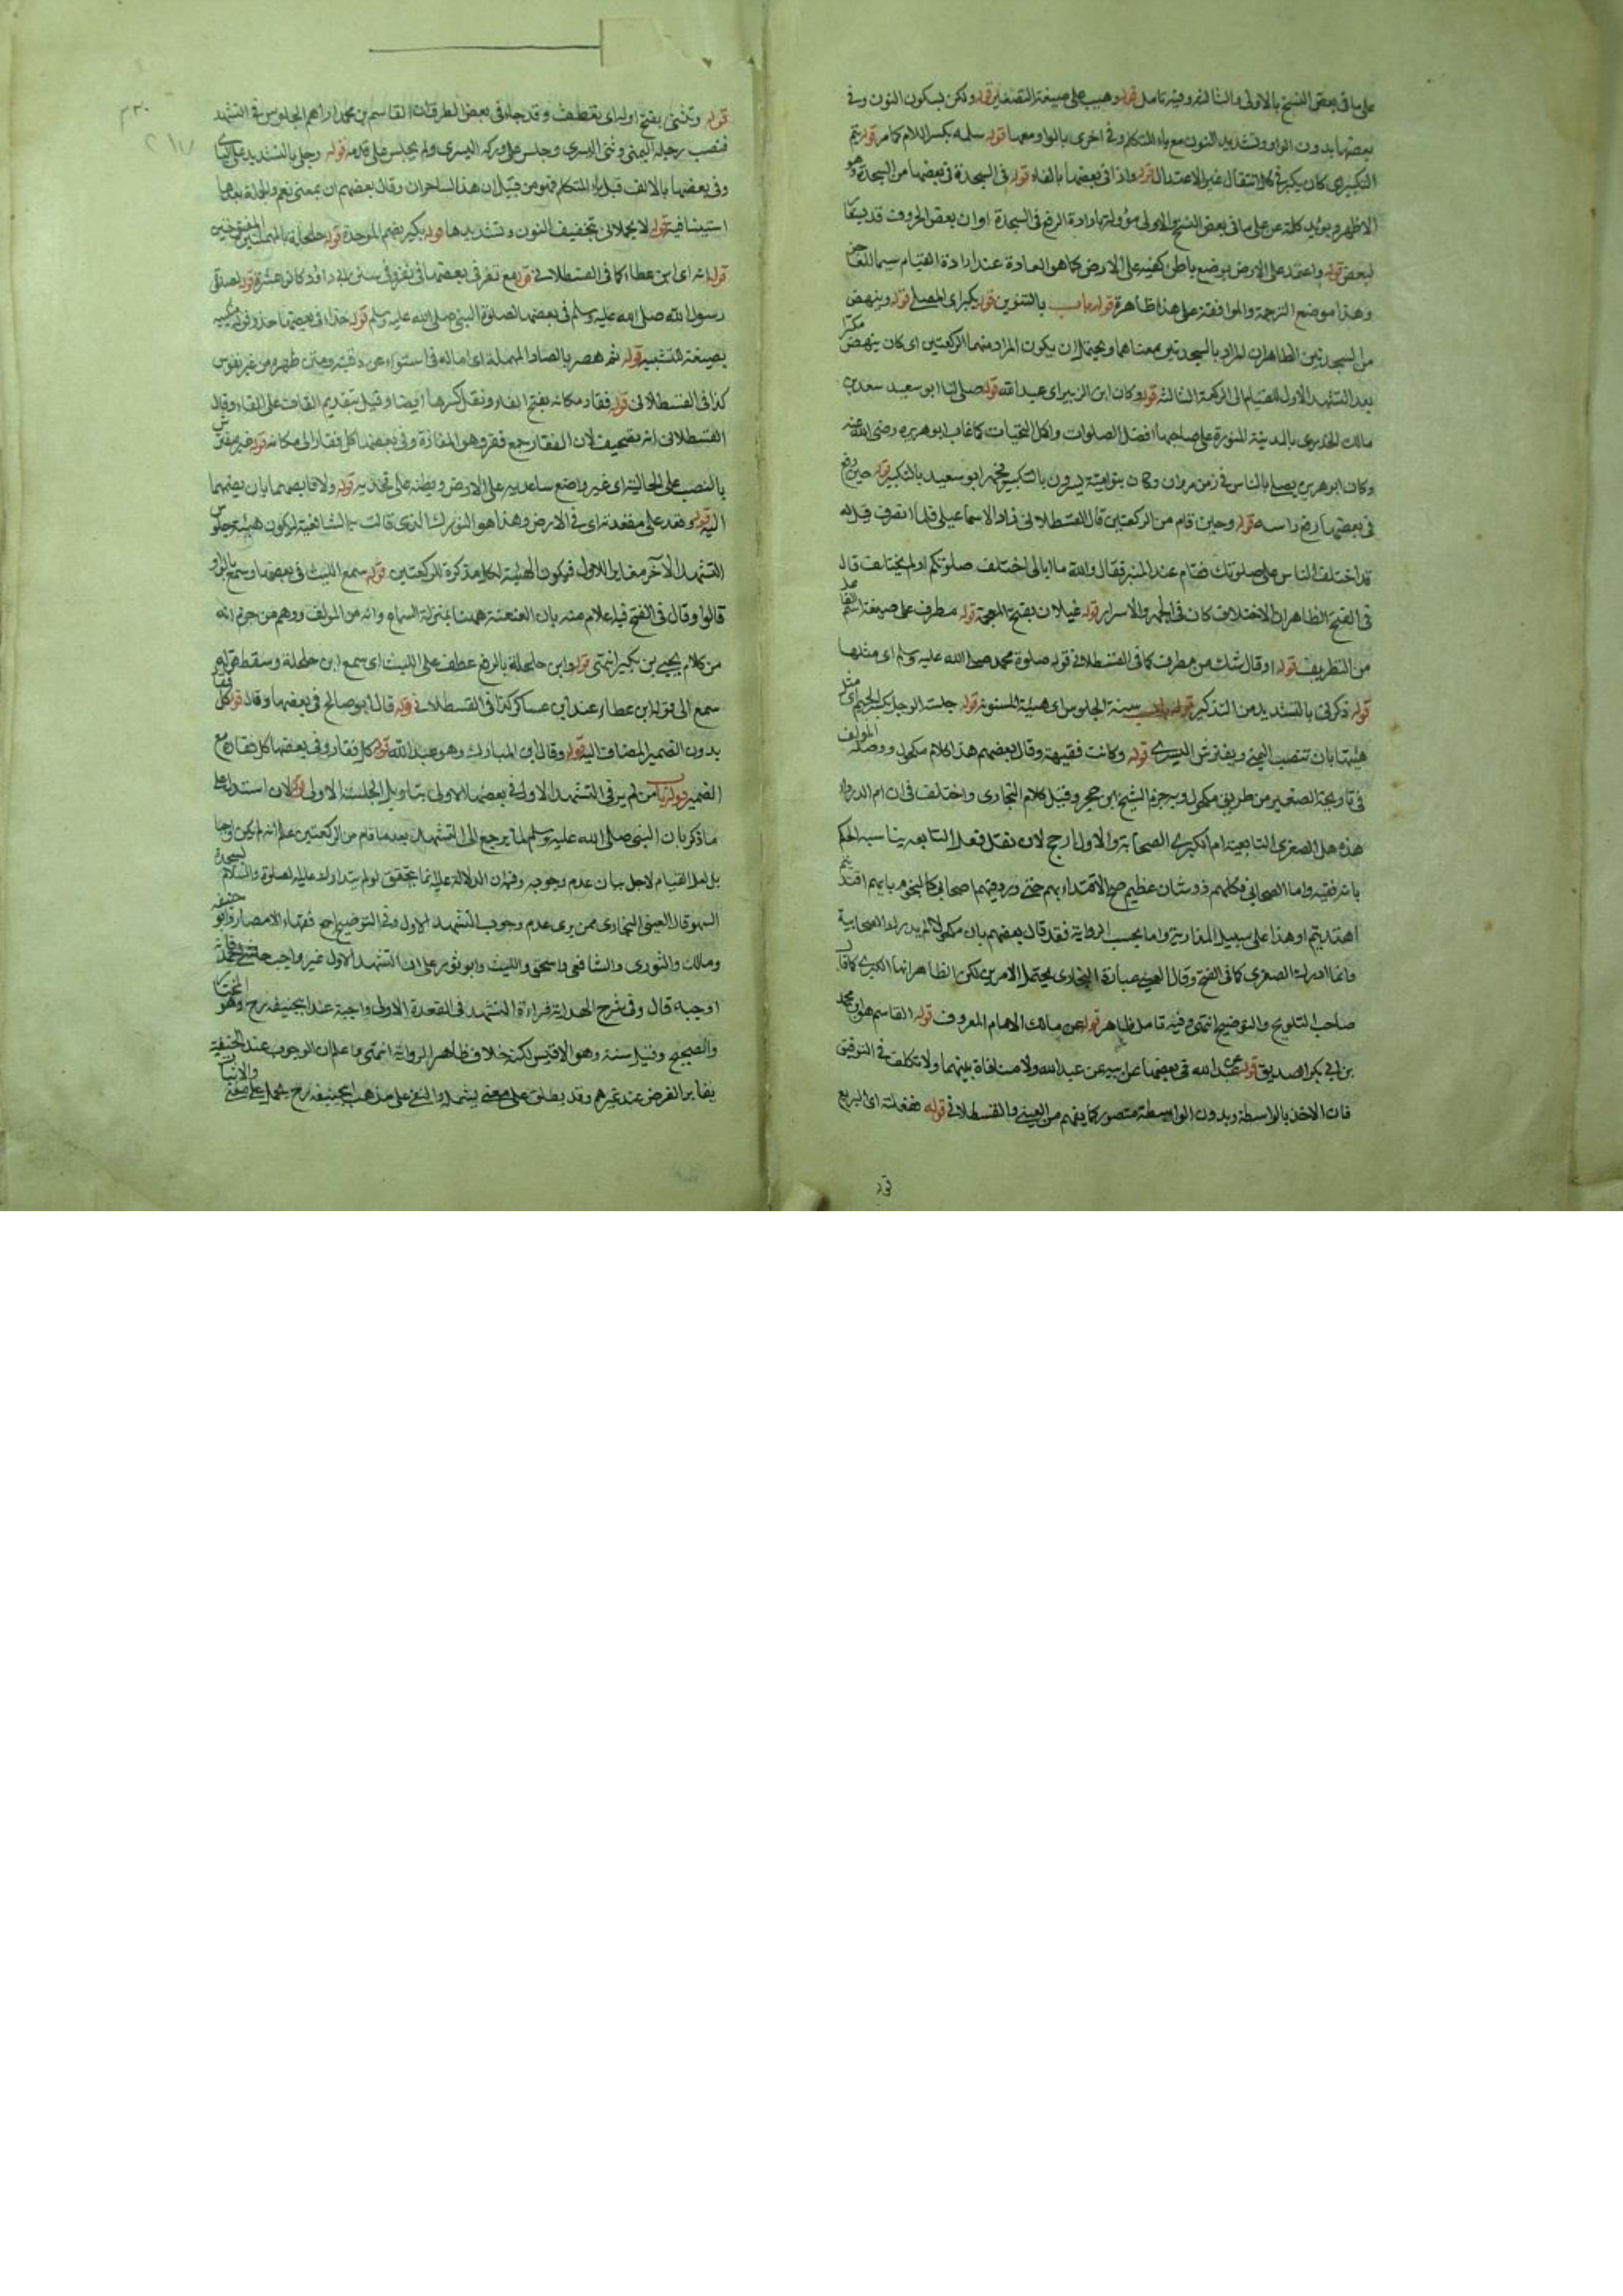 على ما فى بعض النسخ بالاولى والثالثة وفيه تامل قوله وهيب على صيغة التصغير قوله ولكن بسكون النون وفى
بعضها بدون الواو وتشديد النون مع ياء المتكلم وفى اخرى بالواو ومعها قوله سلمه بكسر اللام كما مر قوله يتم
التكبير اى كان يكبر فى كل انتقال غير الاعتدال قوله واذا فى بعضها بالفاء قوله فى السجدة فى بعضها من السجدة وهو
الاظهر ويؤيد كلمة عن على ما فى بعض النسخ والاولى مؤولة بارادة الرفع فى السجدة او ان بعض الحروف قد
لبعض قوله واعتمد على الارض بوضع باطن كفيه على الارض كما هو العادة عند ارادة القيام سيما
وهذا موضع الترجمة والموافقة على هذا ظاهرة قوله باب بالتنوين قوله يكبر اى المصلى قوله وينهض
من السجدتين الظاهر ان المراد بالسجدتين معناهما ويحتمل ان يكون المراد منهما الركعتين اى كان ينهض مكبرا
بعد التشهد الاول للقيام الى الركعة الثالثة قوله وكان ابن الزبير اى عبد الله قوله صلى لنا ابو سعيد سعد بن
مالك الخدرى بالمدينة المنورة على صاحبها افضل الصلوات واكمل التحيات كما غاب ابو هريرة رضى الله عنه
وكان ابو هريرة يصلى بالناس فى زمن مروان وكان بنو امية يسرون بالتكبير فجهر ابو سعيد بالتكبير قوله حين رفع
فى بعضها رفع راسه قوله وحين قام من الركعتين قال القسطلانى زاد الاسماعيلى فلما انصرف قيل له
قد اختلف الناس على صلوتك فقام عند المنبر فقال والله ما ابالى اختلف صلوتكم او لم يختلف قال
فى الفتح الظاهر ان الاختلاف كان فى الجهر والاسرار قوله غيلان بفتح المعجمة قوله مطرف على صيغة اسم الفاعل
من التطريف قوله او قال شك من مطرف كما فى القسطلانى قوله صلوة محمد صلى الله عليه وسلم اى مثلها
قوله ذكرنى بالتشديد من التذكير قوله باب سنة الجلوس اى هيئة المسنونة قوله جلسة الرجل بكسر الجيم اى مثل
هيئتها بان تنصب اليمنى ويفترش اليسرى قوله وكانت فقيهة وقال بعضهم هذا كلام مكحول ووصله المؤلف
فى تاريخه الصغير من طريق مكحول وبه جزم الشيخ ابن حجر وقيل كلام البخارى واختلف فى ان ام الدرداء
هذه هل الصغرى التابعية ام الكبرى الصحابية والاول ارجح لان نقل فعل التابعية يناسبه الحكم
بانه فقيه واما الصحابى فكلهم ذو شان عظيم صح الاقتداء بهم حتى ورد فيهم اصحابى كالنجوم بايهم اقتديتم
اهتديتم او هذا على سبيل المقاربة واما بحسب الرواية فقد قال بعضهم بان مكحولا لم يدرك الصحابية
وانما ادرك الصغرى كما فى الفتح وقال العينى عبارة البخارى يحتمل الامرين لكن الظاهر انها الكبرى كما قال
صاحب التلويح والتوضيح انتهى وفيه تامل ظاهر قوله عن مالك الامام المعروف قوله القاسم هو ابن محمد
بن ابى بكر الصديق قوله عن عبد الله فى بعضها عن ابيه عن عبد الله ولا منافاة بينهما ولا تكلف فى التوفيق
فان الاخذ بالواسطة وبدون الواسطة متصور كما يفهم من العينى والقسطلانى قوله ففعلته اى التربع
قوله
قوله وتثنى بفتح اوله اى تعطف وقد جاء فى بعض الطرق ان القاسم بن محمد اراهم الجلوس فى التشهد
فنصب رجله اليمنى وثنى اليسرى وجلس على وركه اليسرى ولم يجلس على قدمه قوله رجلى بالتشديد على الياء
وفى بعضها بالالف قبل ياء المتكلم فهو من قبيل ان هذا لساحران وقال بعضهم ان بمعنى نعم والجملة بعدها
استينافية قوله لا يحملانى بتخفيف النون وتشديدها قوله بكير بضم الموحدة قوله حلحلة بالمهملتين المفتوحتين
قوله انه اى ابن عطاء كما فى القسطلانى قوله مع نفر فى بعضها فى نفر وفى سنن ابى داؤد كانوا عشرة قوله لصلوة
رسول الله صلى الله عليه وسلم فى بعضها لصلوة النبى صلى الله عليه وسلم قوله حذاء فى بعضها حذو قوله منكبيه
بصيغة التثنية قوله ثم هصر بالصاد المهملة اى اماله فى استواء عن رقبته ومتن ظهره من غير تقوس
كذا فى القسطلانى قوله فقار مكانه بفتح الفاء ونقل كسرها ايضا وقيل بتقديم القاف على الفاء وقال
القسطلانى انه تصحيف لان القفار جمع قفر وهو المفازة وفى بعضها كل فقار الى مكانه قوله غير مفترش
بالنصب على الحالية اى غير واضع ساعديه على الارض وبطنه على فخذيه قوله ولا قابضهما بان يضمهما
اليه قوله وقعد على مقعدته اى فى الارض وهذا هو التورك الذى قالت به الشافعية ليكون هيئة جلوس
التشهد الآخر مقابلا للاول فيكون الهيئة لكل مذكرة للركعتين قوله سمع الليث فى بعضها وسمع بالواو
قالوا وقال فى الفتح فيه اعلام منه بان العنعنة ههنا بمنزلة السماع وانه من المؤلف ووهم من جزم انه
من كلام يحيى بن بكير انتهى قوله وابن حلحلة بالرفع عطف على الليث اى سمع ابن حلحلة وسقط قوله
سمع الى قوله ابن عطاء عند ابن عساكر كذا فى القسطلانى قوله قال ابو صالح فى بعضها وقال قوله كل فقار
بدون الضمير المضاف اليه قوله وقال ابن المبارك وهو عبد الله قوله كل فقار وفى بعضها كل فقاره مع
الضمير قوله باب من لم ير فى التشهد الاول فى بعضها الاولى بتاويل الجلسة الاولى قوله لان استدل على
ما ذكر بان النبى صلى الله عليه وسلم لما لم يرجع الى التشهد بعد ما قام من الركعتين علم انه لم يكن واجبا
بل لعل القيام لاجل بيان عدم وجوبه وفيه ان الدلالة عليه انما يتحقق لو لم يتداركه عليه الصلوة والسلام بسجدة
السهو قال العينى البخارى ممن يرى عدم وجوب التشهد الاول وفى التوضيح اجمع فقهاء الامصار ابو حنيفة
ومالك والثورى والشافعى واسحق والليث وابو ثور على ان التشهد الاول غير واجب حاشى احمد فانه
اوجبه قال وفى شرح الهداية قراءة التشهد فى القعدة الاولى واجبة عند ابى حنيفة رح وهو المختار
والصحيح وقيل سنة وهو الاقيس لكنه خلاف ظاهر الرواية انتهى واعلم ان الوجوب عند الحنفية
يغاير الفرض عند غيرهم وقد يطلق على معنى يشمله والنفى على مذهب ابى حنيفة رح يحمل على معنى والاثبات